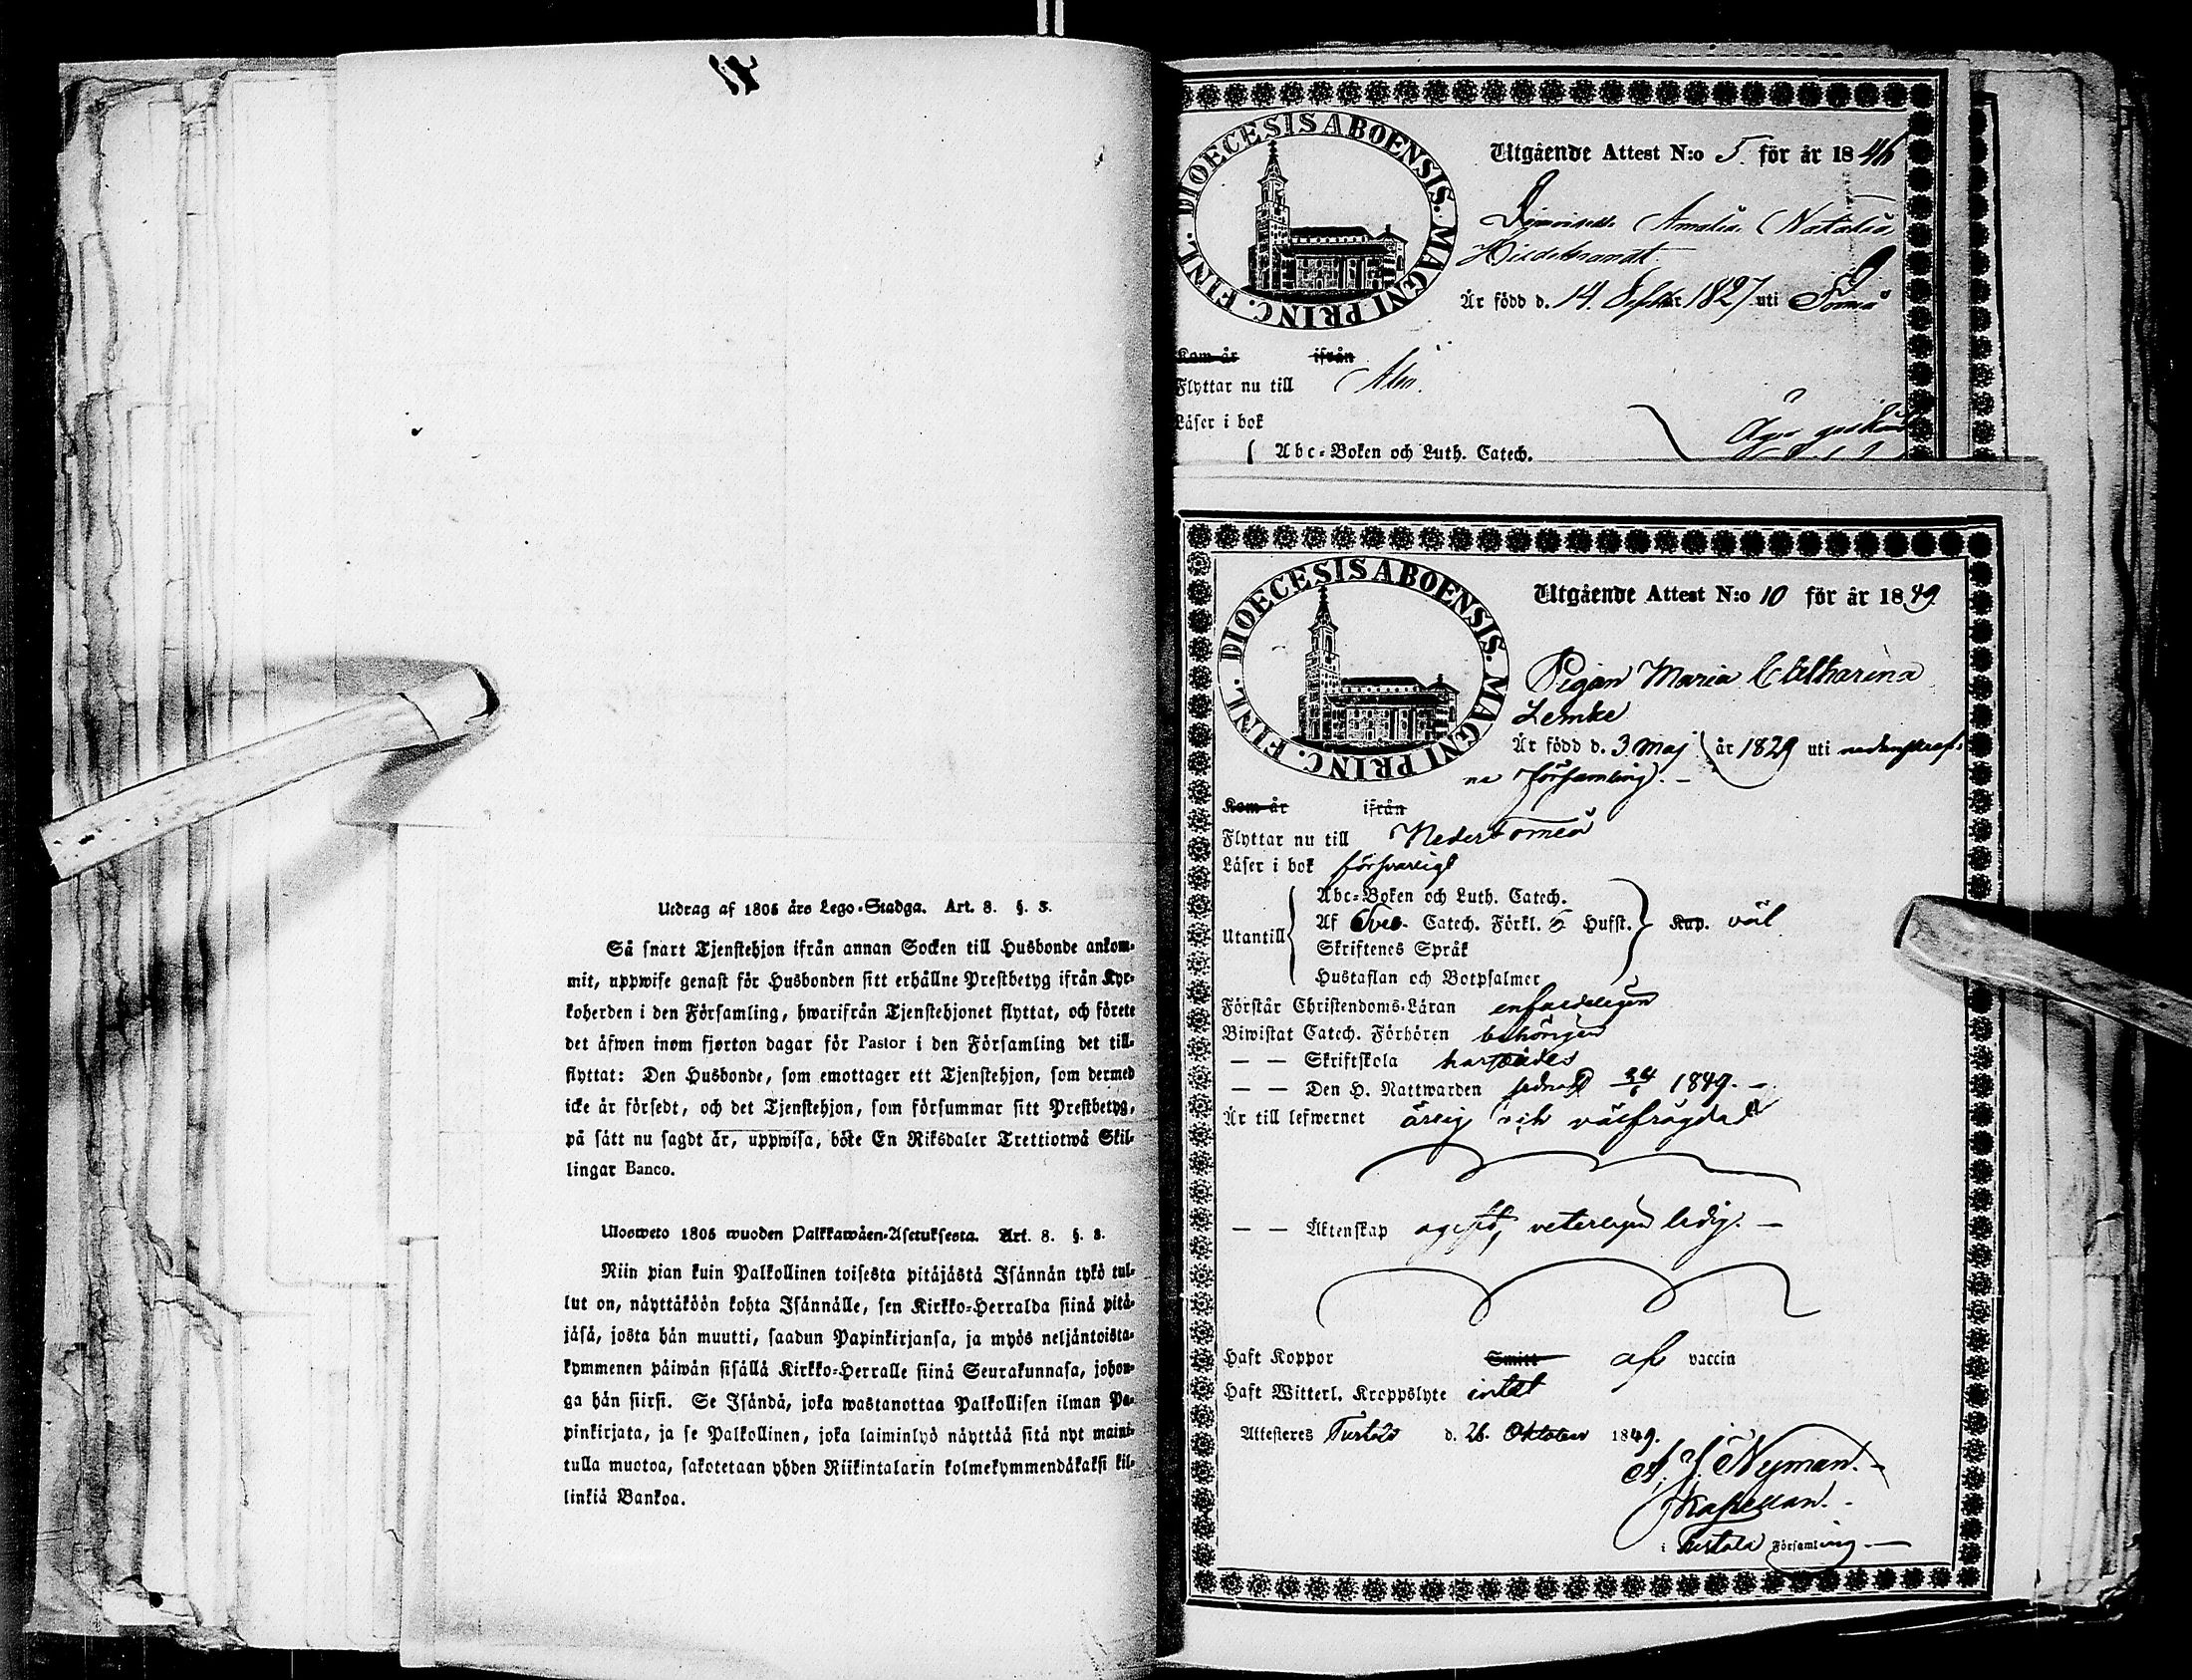 Utdrag af 1805 års Lego-Stadga. Art. 8. §. 3.
Så snart Tjenstehjon ifrån annan Socken till Husbonde ankom-
mit, uppwise genast för Husbonden sitt erhållne Prestbetyg ifrån Kyr-
koherden i den Församling, hwarifrån Tjenstehjonet flyttat, och förete
det äfwen inom fjorton dagar för Pastor i den Församling det till-
flyttat: Den Husbonde, som emottager ett Tjenstehjon, som dermed
icke är försedt, och det Tjenstehjon, som försummar sitt Prestbetyg,
på sätt nu sagdt är, uppwisa, böte En Riksdaler Trettiotwå Skil-
lingar Banco.
Ulosweto 1805 wuoden Palkkawäen-Asetuksesta. Art. 8. §. 3.
Niin pian kuin Palkollinen toisesta pitäjästä Isännän tykö tul-
lut on, näyttäköön kohta Isännälle, sen Kirkko-Herralda siinä pitä-
jäsä, josta hän muutti, saadun Papinkirjansa, ja myös neljäntoista-
kymmenen päiwän sisällä Kirkko-Herralle siinä Seurakunnasa, johon-
ga hän siirsi. Se Isändä, joka wastanottaa Palkollisen ilman Pa-
pinkirjata, ja se Palkollinen, joka laiminlyö näyttää sitä nyt maini-
tulla muotoa, sakotetaan yhden Riikintalarin kolmekymmendäkaksi kil-
linkiä Bankoa.
DIOECESIS ABOENSIS. MAGNI PRINC. FINL.
Utgående Attest N:o 5. för år 1846
Amalia Natalia
Hildebrandt.
Är född d. 14. Septbr 1827 uti Torneå
Kom år ifrån
Flyttar nu till Åbo.
Läser i bok
Abc-Boken och Luth. Catech.
DIOECESIS ABOENSIS. MAGNI PRINC. FINL.
Utgående Attest N:o 10 för år 1849.
Pigan Maria Catharina
Lemke
Är född d. 3 Maj år 1829 uti
ne församling. –
Kom år ifrån
Flyttar nu till Nedertorneå
Läser i bok försvarligt
Abc-Boken och Luth. Catech.
Utantill Af Sveb. Catech. Förkl. Huffst. Kap. väl
Skriftenes Språk
Hustaflan och Botpsalmer
Förstår Christendoms-Läran enfaldeligen
Biwistat Catech. Förhören behörigen
— — Skriftskola
— — Den H. Nattwarden sednast 24/6 1849. –
Är till lefwernet ärlig och välfrägdad
— — Äktenskap veterligen ledig. –
Haft Koppor Smitt af vaccin
Haft Witterl. Kroppslyte intet
Attesteres Turtola d. 26. Oktober 1849.
Nyman. –
Kapellan. –
i Turtola Församling. –